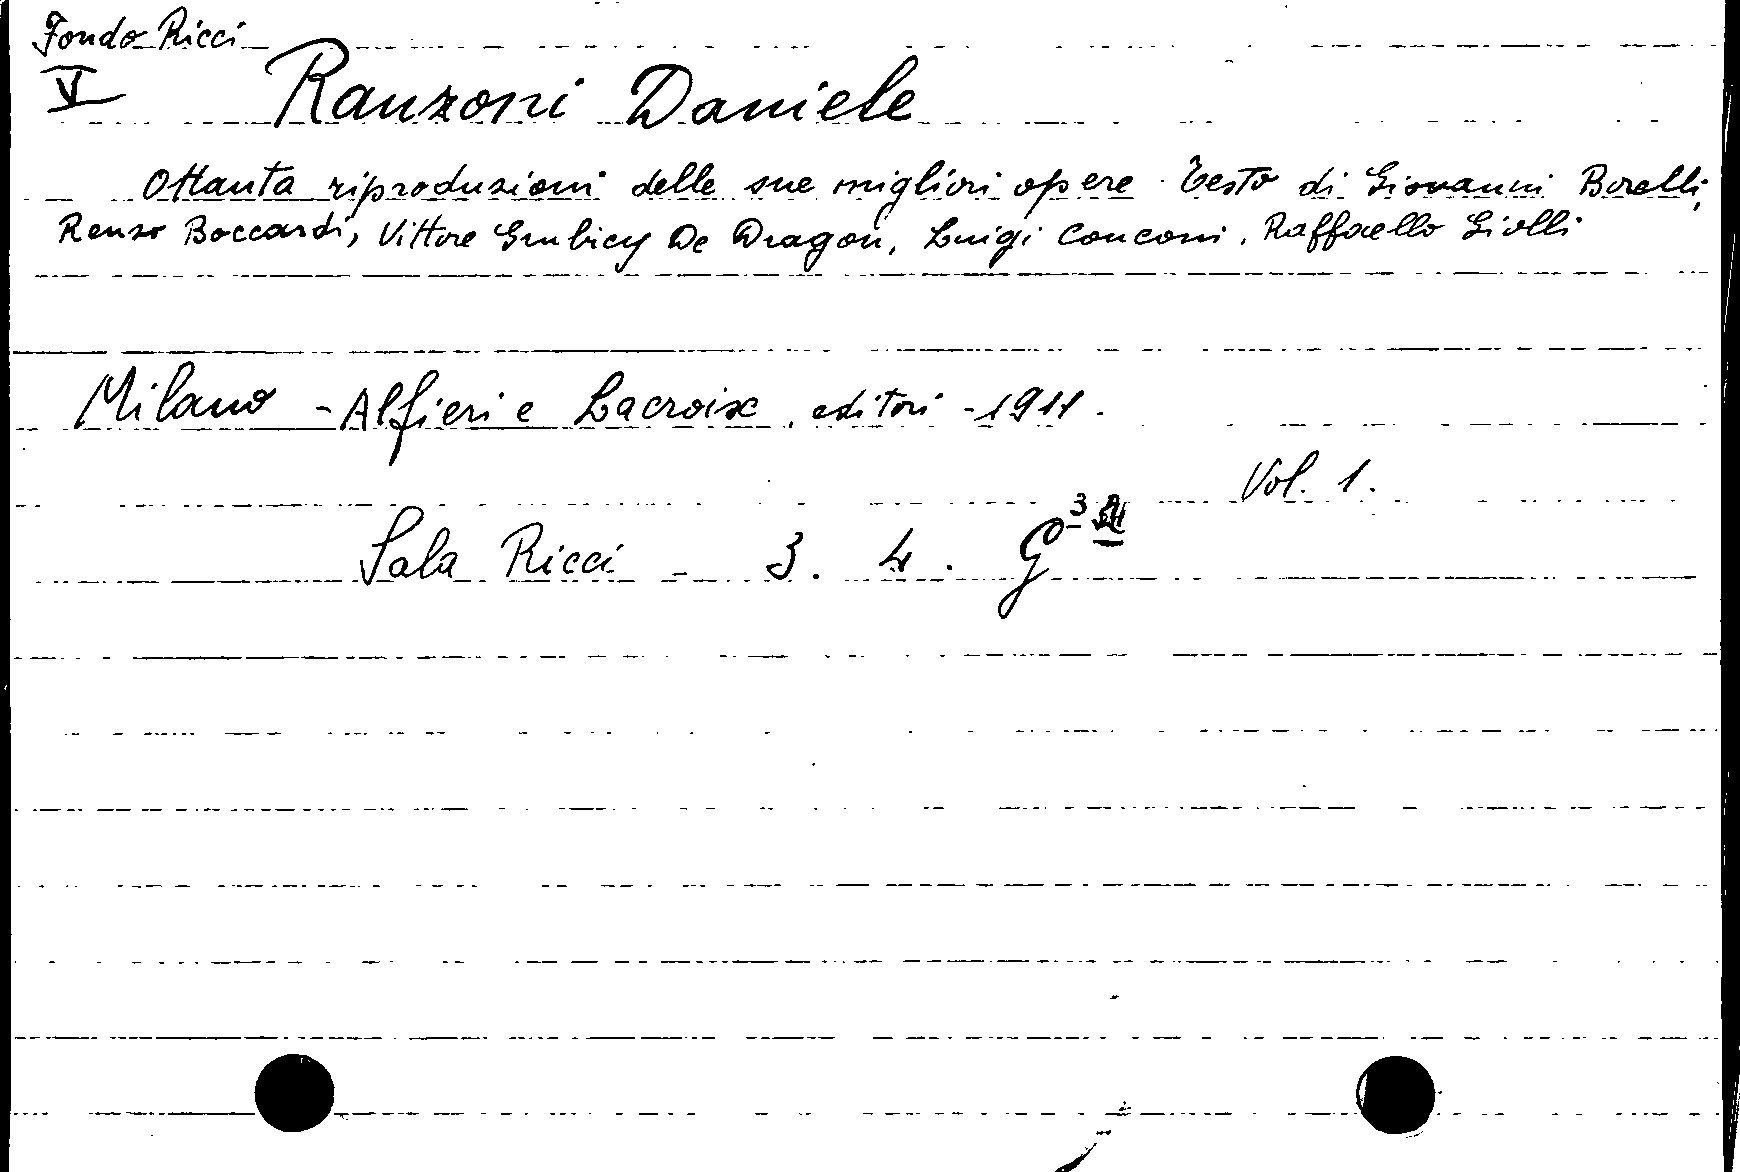 Fondo Ricci
VI Ranzoni Daniele
Ottanta riproduzioni delle sue migliori opere. Testo di Giovanni Borelli,
Renzo Boccardi, Vittore Grubicy De Dragon, Luigi Conconi, Raffaello Giolli
Milano - Alfieri e Lacroix, editori - 1911.
Vol. 1.
Sala Ricci - 3. 4. G 3